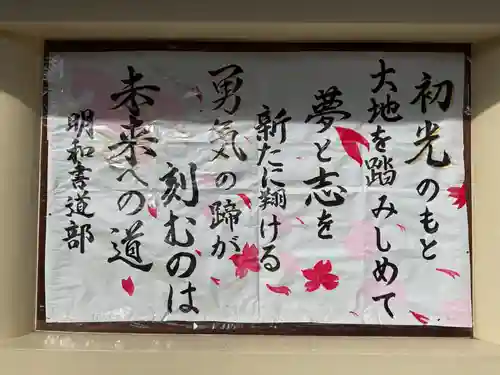 初光のもと
大地を踏みしめて
夢と志を
新たに翔ける
勇気の蹄が
刻むのは
未来への道
明和書道部